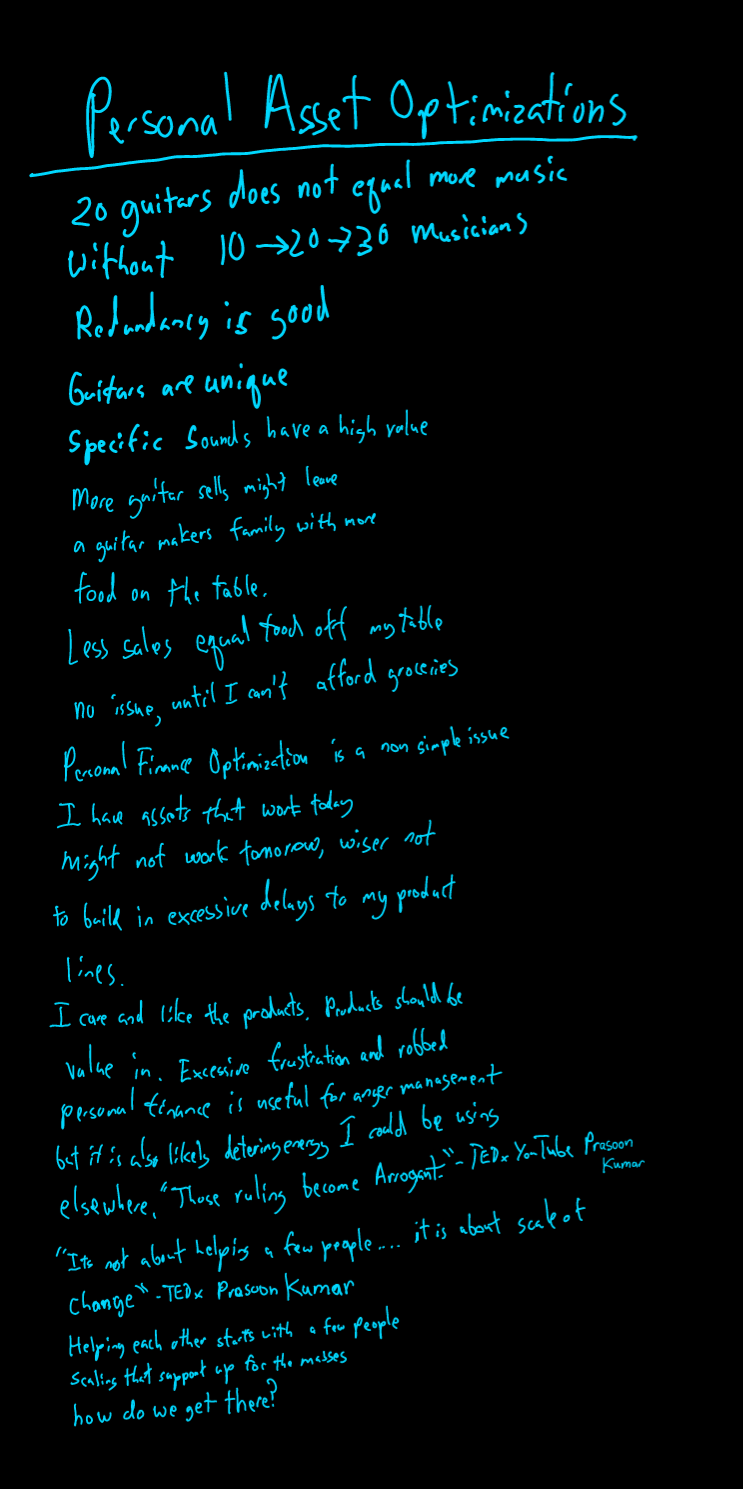 Personal Asset Optimizations
20 guitars does not equal more music
without 10→20→30 musicians
Redundancy is good
Guitars are unique
Specific Sounds have a high value
More guitar sells might leave
a guitar makers family with more
food on the table.
Less sales equal food off my table
no issue, until I can't afford groceries
Personal Finance Optimization is a non simple issue
I have assets that work today
might not work tomorrow, wiser not
to build in excessive delays to my product
lines.
I care and like the products. Products should be
value in. Excessive frustration and robbed
personal finance is useful for anger management
but it is also likely detering energy I could be using
elsewhere. "Those ruling become Arrogant." - TEDx YouTube Prasoon
Kumar
"Its not about helping a few people.... it is about scale of
change" - TEDx Prasoon Kumar
Helping each other starts with a few people
Scaling that support up for the masses
how do we get there?